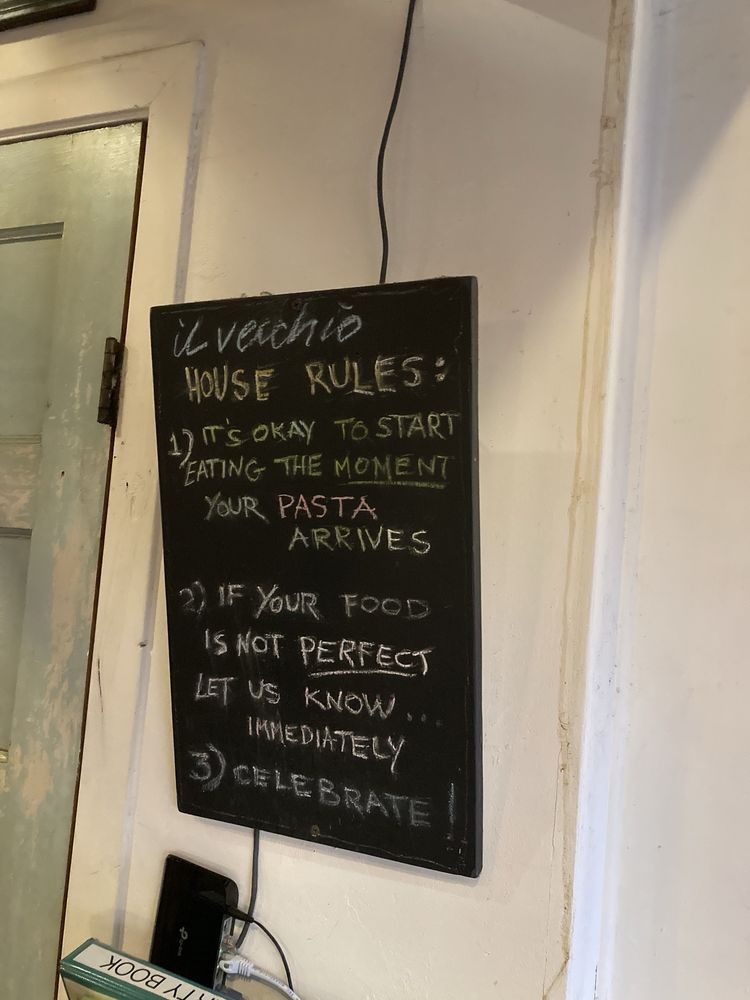 il vecchio
HOUSE RULES:
1) IT'S OKAY TO START
EATING THE MOMENT
YOUR PASTA
ARRIVES
2) IF YOUR FOOD
IS NOT PERFECT
LET US KNOW...
IMMEDIATELY
3) CELEBRATE!
BOOK